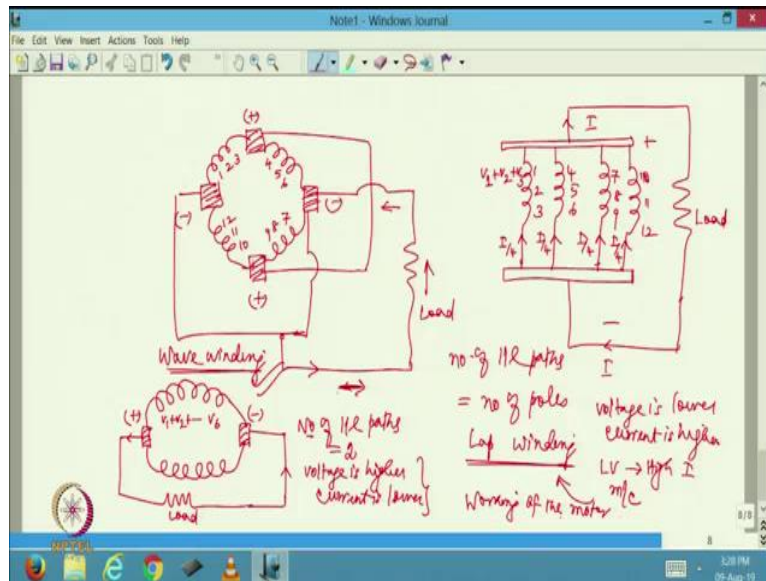 Note1 - Windows Journal
File Edit View Insert Actions Tools Help
(+)
1 2 3
4 5 6
(-)
(-)
12 11 10
9 8 7
(+)
Load
Wave winding
(+)
V1+V2+--V6
(-)
Load
No of 11el paths
= 2
voltage is higher
current is lower
I
+
V1+V2+V3
1 2 3
4 5 6
7 8 9
10 11 12
I/4 I/4 I/4 I/4
Load
-
I
no. of 11el paths
= no of poles
Lap winding
voltage is lower
current is higher
LV → High I
m/c
Working of the motor
NPTEL
8/8
8
3:28 PM
09-Aug-19